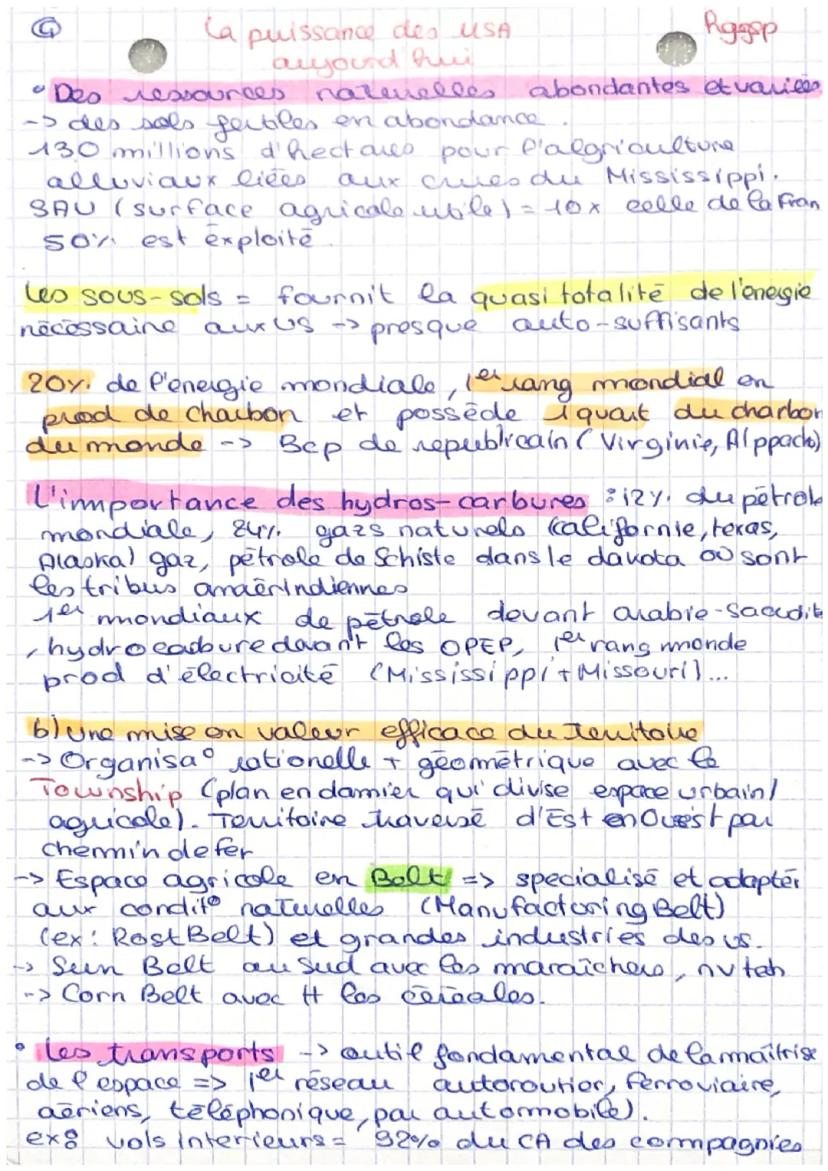 La puissance des USA Hggsp
aujourd'hui
• Des ressources naturelles abondantes et variées
-> des sols fertiles en abondance.
130 millions d'hectares pour l'algriculture
alluviaux liées aux crues du Mississippi.
SAU (surface agricole utile) = 10x celle de la Fran
50% est exploité
Les sous-sols = fournit la quasi totalité de l'énergie
nécessaire aux US -> presque auto-suffisants
20% de l'énergie mondiale, 1er rang mondial en
prod de charbon et possède 1 quart du charbon
du monde -> Bcp de republicain (Virginie, Alppach)
L'importance des hydros-carbures : 12% du pétrole
mondiale, 24% gazs naturels (californie, texas,
Alaska) gaz, pétrole de Schiste dans le dakota où sont
les tribus amaérindiennes
1er mondiaux de pétrole devant arabie-Saoudite
, hydrocarbure devant les OPEP, 1er rang monde
prod d'électricité (Mississippi + Missouri)...
b) Une mise en valeur efficace du Territoire
-> Organisa° rationelle + géométrique avec le
Township (plan en damier qui divise espace urbain/
agricole). Territoire traversé d'Est en Ouest par
chemin de fer
-> Espace agricole en Belt => specialisé et adapter
aux condit° naturelles (Manufactoring Belt)
(ex: Rost Belt) et grandes industries des us.
-> Sun Belt au Sud avec les maraîchers, nv teh
-> Corn Belt avec tt les céréales.
• Les transports -> outil fondamental de la maîtrise
de l'espace => 1er réseau autoroutier, ferroviaire,
aériens, téléphonique, par automobile).
ex: vols interieurs = 92% du CA des compagnies